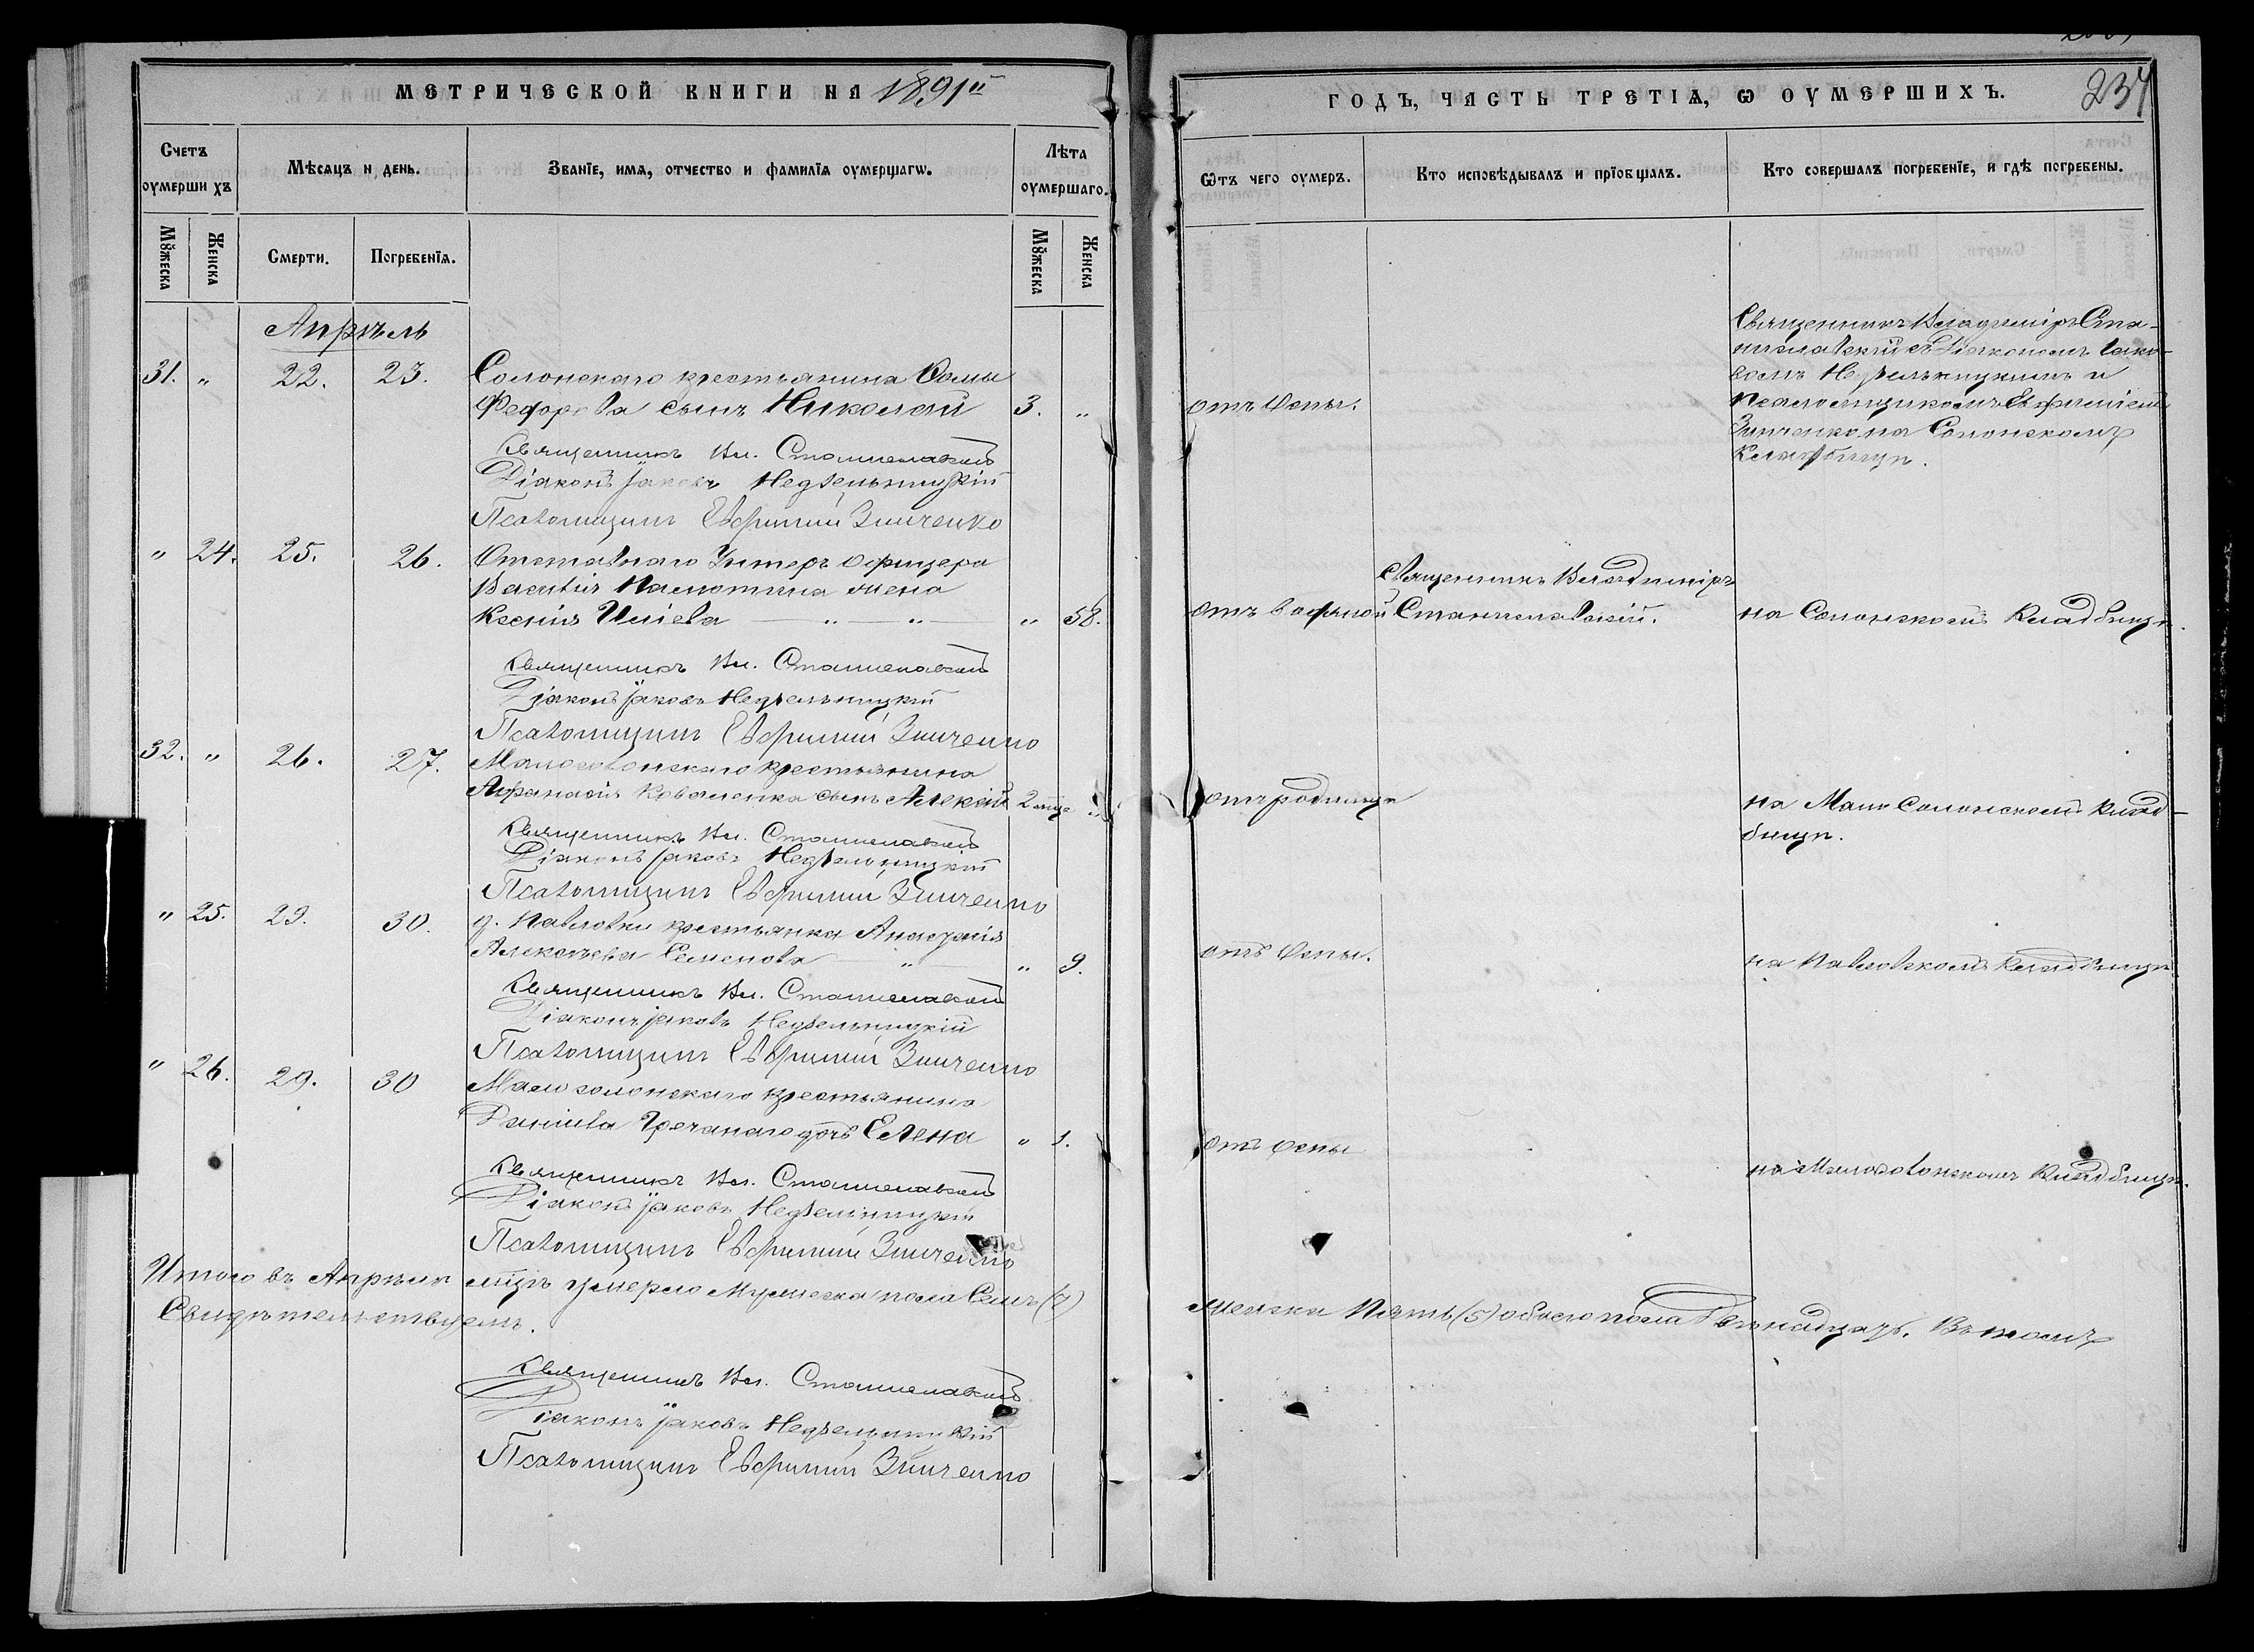 МЕТРИЧЕСКОЙ КНИГИ НА 1891й
Счетъ оумершихъ
Мѣсяцъ и день.
Званїе, имѧ, отчество и фамилїѧ оумершагѡ.
Лѣта оумершаго.
Мꙋжеска
Женска
Смерти.
Погребенїѧ.
Мꙋжеска
Женска
Апрѣль
31. „ 22. 23. Солонскаго крестьянина Фомы
Федорова сынъ Николай 3. „
Священникъ Вл. Станиславскій
Діаконъ Іаковъ Недѣльницкій
Псаломщикъ Евфимій Зинченко
„ 24. 25. 26. Отставнаго Унтеръ офицера
Василія жена
Ксенія Илиева „ „ „ 58.
Священникъ Вл. Станиславскій
Діаконъ Іаковъ Недѣльницкій
Псаломщикъ Евфимій Зинченко
32. „ 26. 27. Малосолонскаго крестьянина
Афанасія Коваленка сынъ Алексій 2 „
Священникъ Вл. Станиславскій
Діаконъ Іаковъ Недѣльницкій
Псаломщикъ Евфимій Зинченко
„ 25. 29. 30. д. Павловки крестьянка Анастасія
Алексѣева Семенова „ „ 9.
Священникъ Вл. Станиславскій
Діаконъ Іаковъ Недѣльницкій
Псаломщикъ Евфимій Зинченко
„ 26. 29. 30 Малосолонскаго крестьянина
Даніила Гречанаго дочь Елена „ 1.
Священникъ Вл. Станиславскій
Діаконъ Іаковъ Недѣльницкій
Псаломщикъ Евфимій Зинченко
Итого въ Апрѣлѣ мцѣ умерло Мужеска пола Семь (7)
Свидѣтельствуемъ.
Священникъ Вл. Станиславскій
Діаконъ Іаковъ Недѣльницкій
Псаломщикъ Евфимій Зинченко
ГОДЪ, ЧАСТЬ ТРЕТІѦ, Ѡ ОУМЕРШИХЪ. 237
Ѿтъ чего оумеръ.
Кто исповѣдывалъ и прїобщалъ.
Кто совершалъ погребенїе, и гдѣ погребены.
Священникъ Владиміръ Ста-
ниславскій съ Діакономъ Іако-
вомъ Недѣльницкимъ и
Псаломщикомъ Евфиміемъ
отъ Оспы.
Зинченко на Солонскомъ
Кладбищѣ.
Священникъ Владиміръ
отъ Станиславскій. на Солонскомъ Кладбищѣ.
отъ родимца на Мало Солонскомъ Клад-
бищѣ.
отъ Оспы. на Павловскомъ Кладбищѣ
отъ оспы
на Малосолонскомъ Кладбищѣ.
женска Пять (5) обоего пола Двѣнадцать. Въ томъ